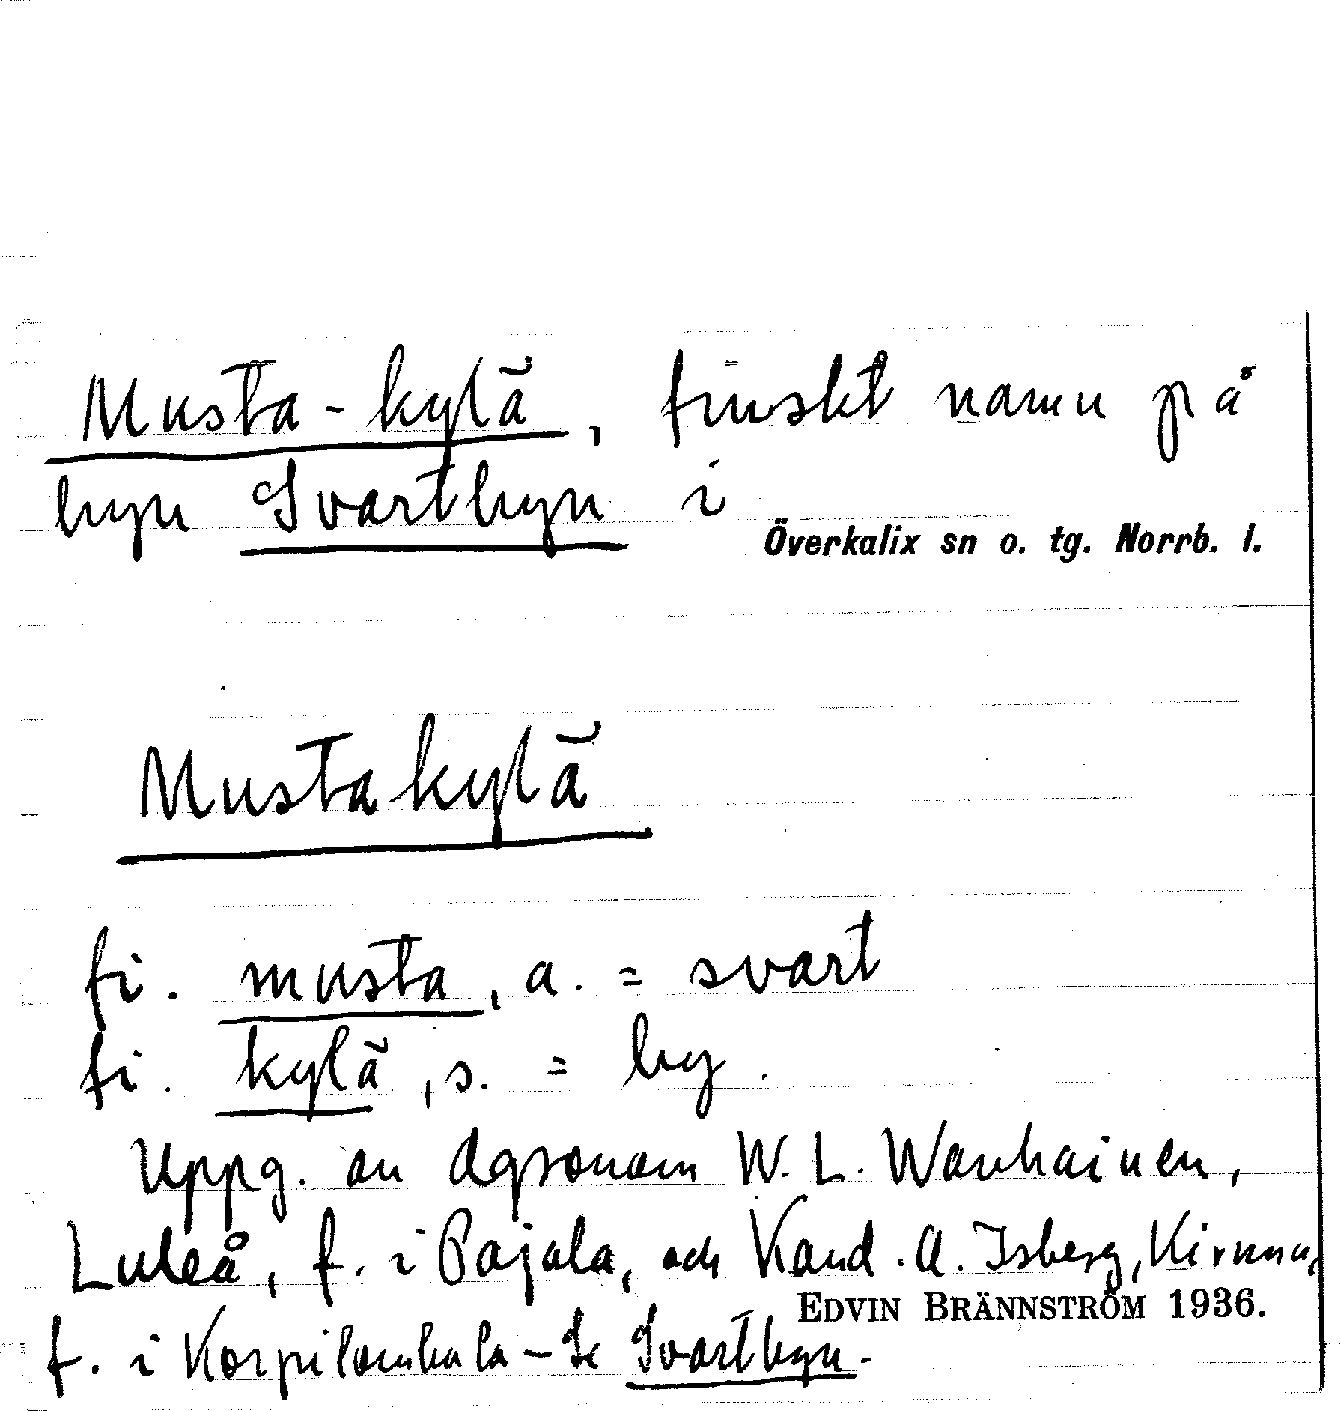 Musta-kylä, finskt namn på
byn Svartbyn i
Överkalix sn o. tg. Norrb. l.
Mustakylä
fi. musta, a. = svart
fi. kylä, s. = by.
Uppg. av Agronom W. L. Wanhainen,
Luleå, f. i Pajala, och Kand. A. Isberg, Kiruna,
EDVIN BRÄNNSTRÖM 1936.
f. i Korpilombolo – Se Svartbyn.